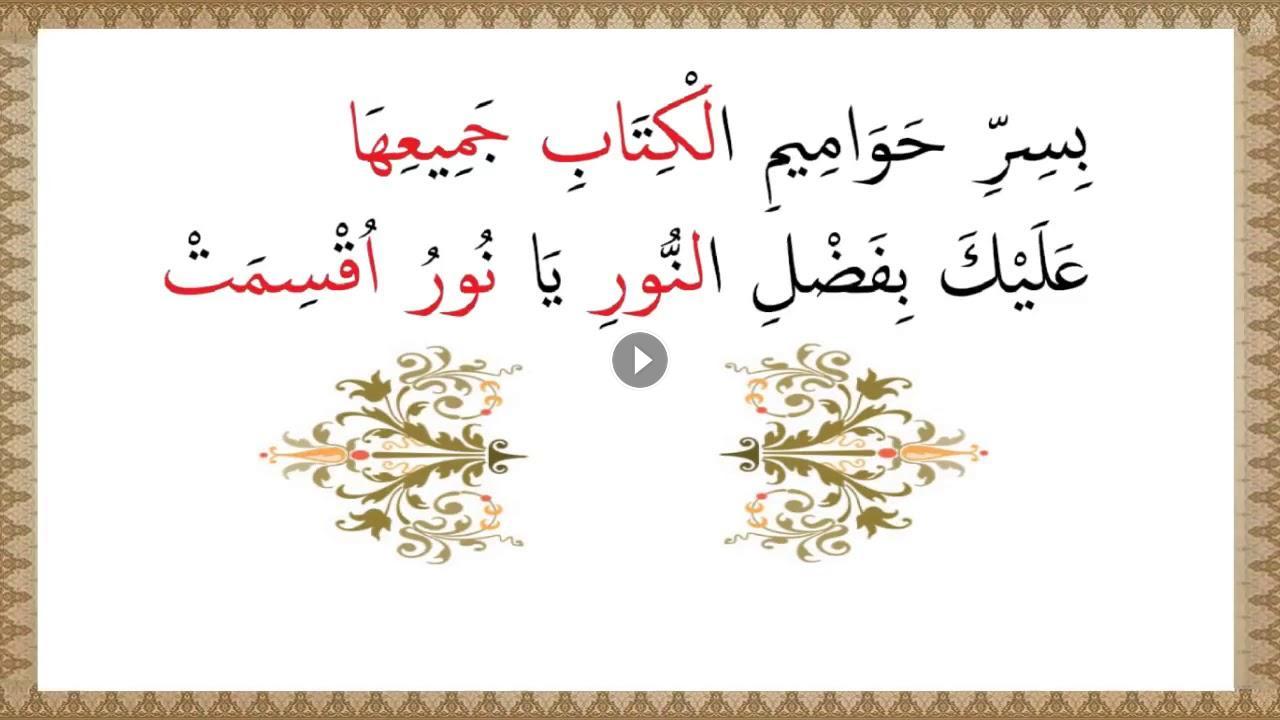 بِسِرِّ حَوَامِيمِ الْكِتَابِ جَمِيعِهَا
عَلَيْكَ بِفَضْلِ النُّورِ يَا نُورُ اُقْسِمَتْ